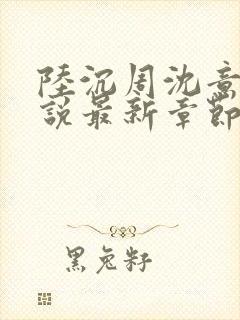 陸沉周沈意
說最新章節
黑兔籽